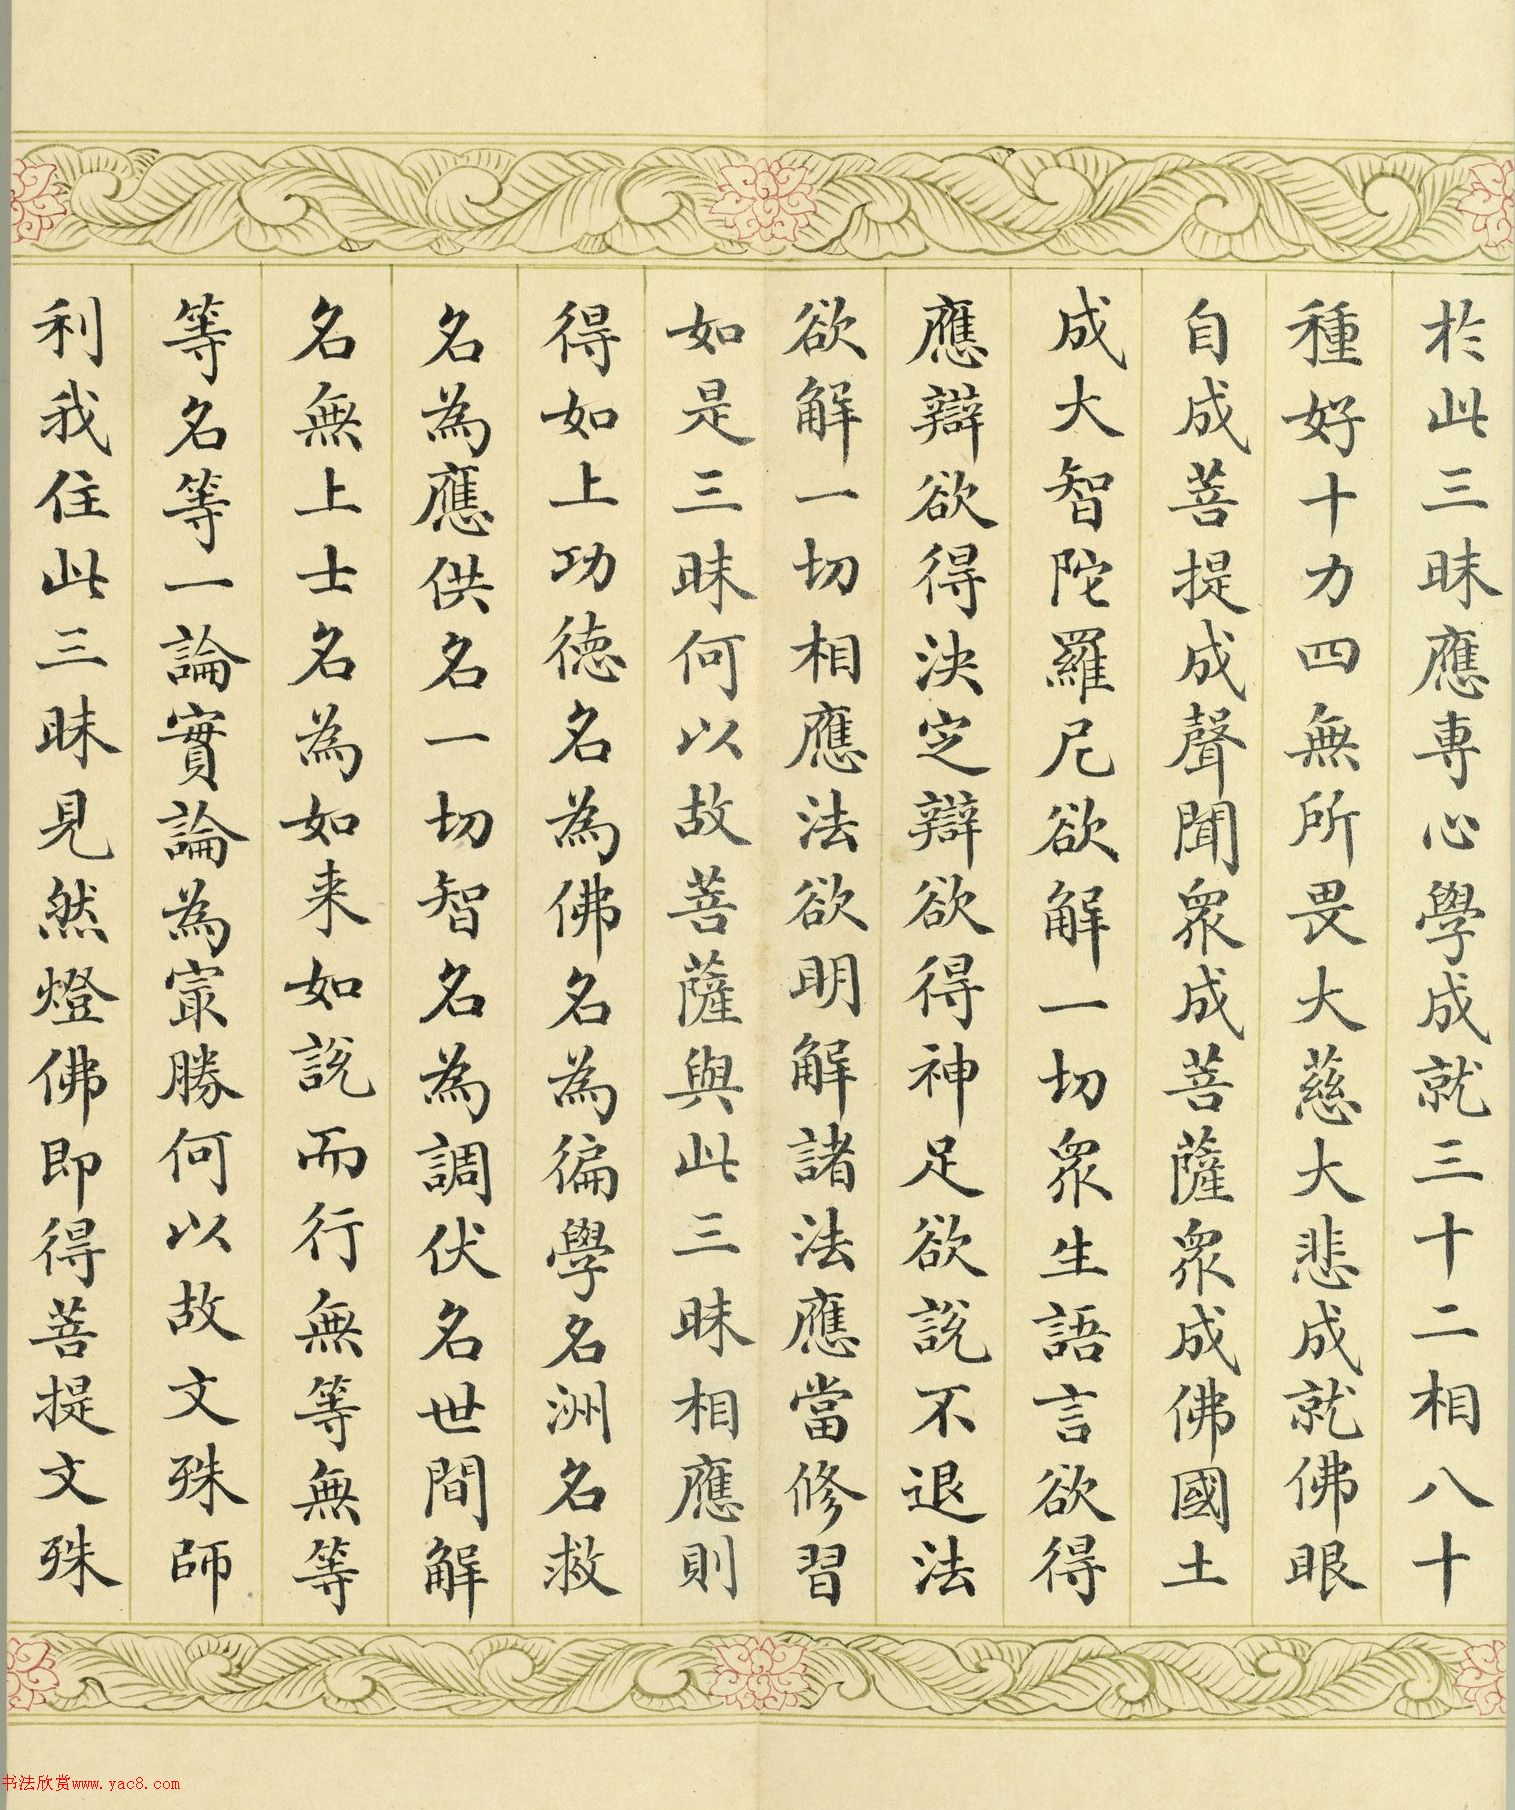 於此三昧應專心學成就三十二相八十
種好十力四無所畏大慈大悲成就佛眼
自成菩提成聲聞眾成菩薩眾成佛國土
成大智陀羅尼欲解一切眾生語言欲得
應辯欲得決定辯欲得神足欲說不退法
欲解一切相應法欲明解諸法應當修習
如是三昧何以故菩薩與此三昧相應則
得如上功德名為佛名為徧學名洲名救
名為應供名一切智名為調伏名世間解
名無上士名為如来如說而行無等無等
等名等一論實論為㝡勝何以故文殊師
利我住此三昧見然燈佛即得菩提文殊
书法欣赏www.yac8.com